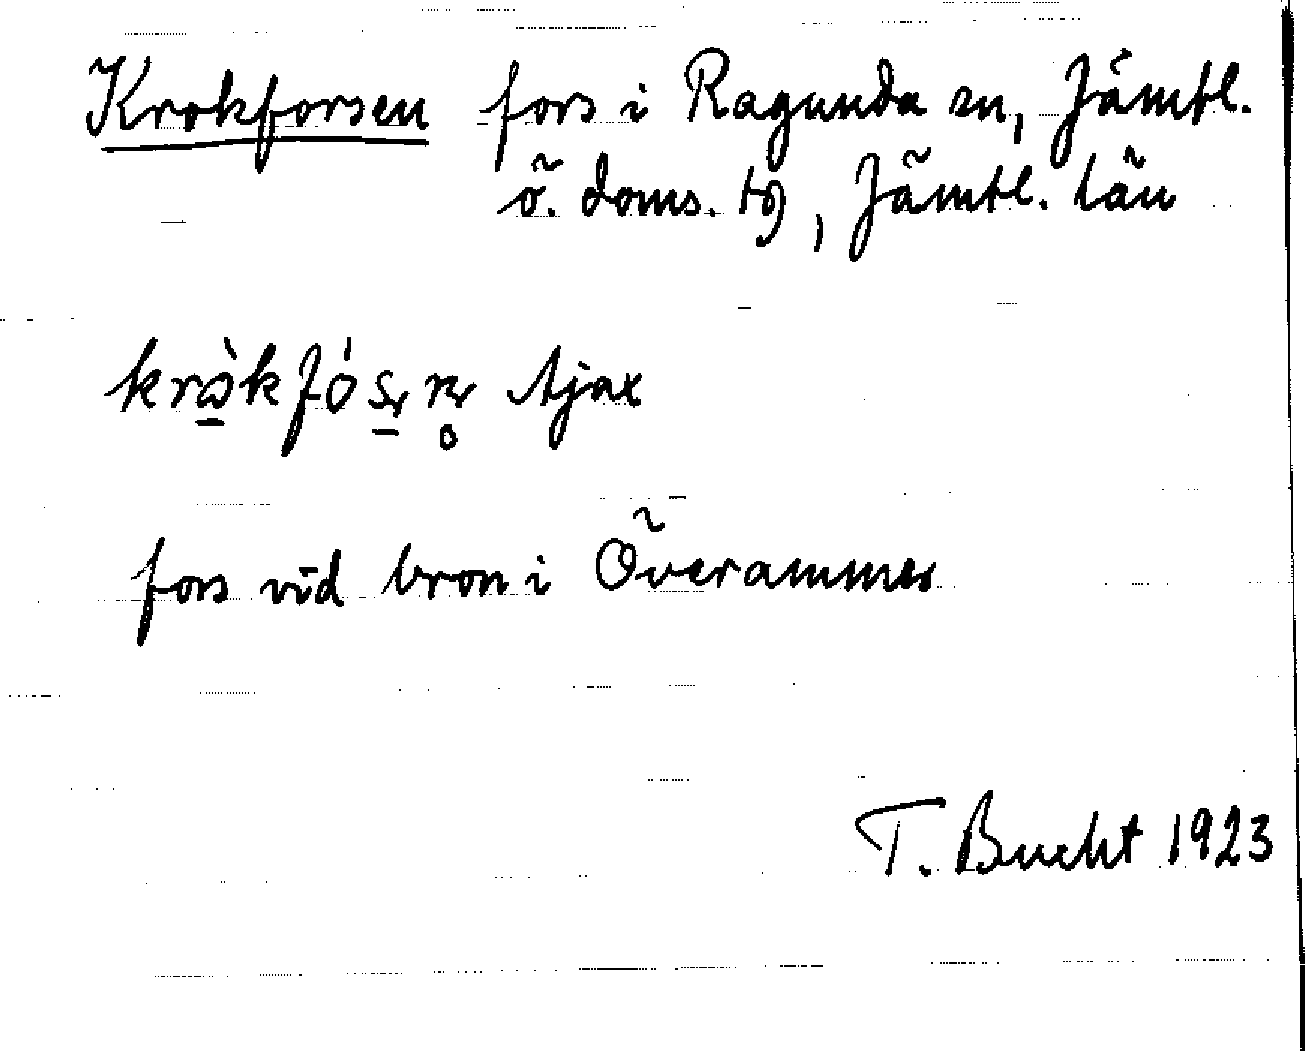 Krokforsen fors i Ragunda sn, Jämtl.
ö. doms. tg, Jämtl. län
Ajax
fors vid bron i Överammer
T. Bucht 1923